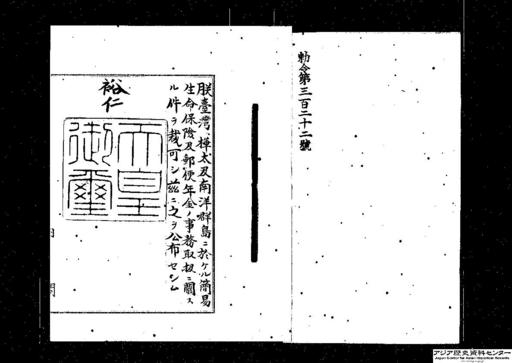 勅令第三百二十二號
朕臺灣、樺太及南洋群島ニ於ケル簡易
生命保險及郵便年金ノ事務取扱ニ關ス
ル件ヲ裁可シ茲ニ之ヲ公布セシム
裕仁
天皇
御璽
アジア歴史資料センター
Japan Center for Asian Historical Records